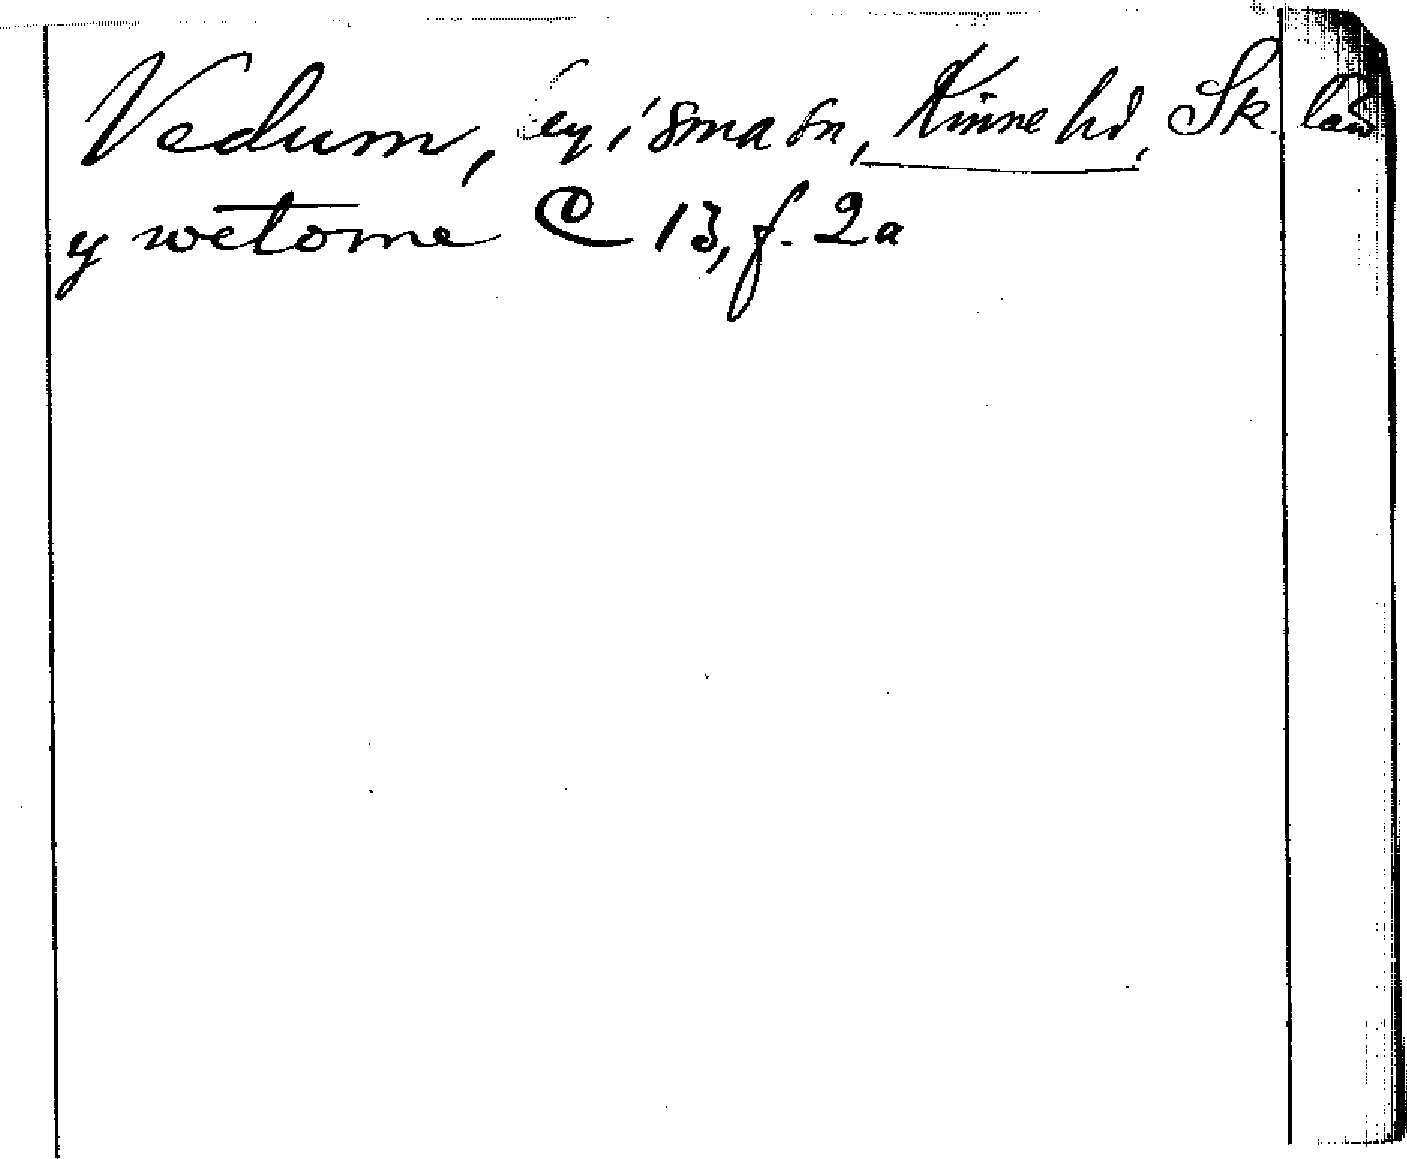 Vedum, by i sma sn, Kinne hd, Sk. län
y wetome C 13, f. 2a